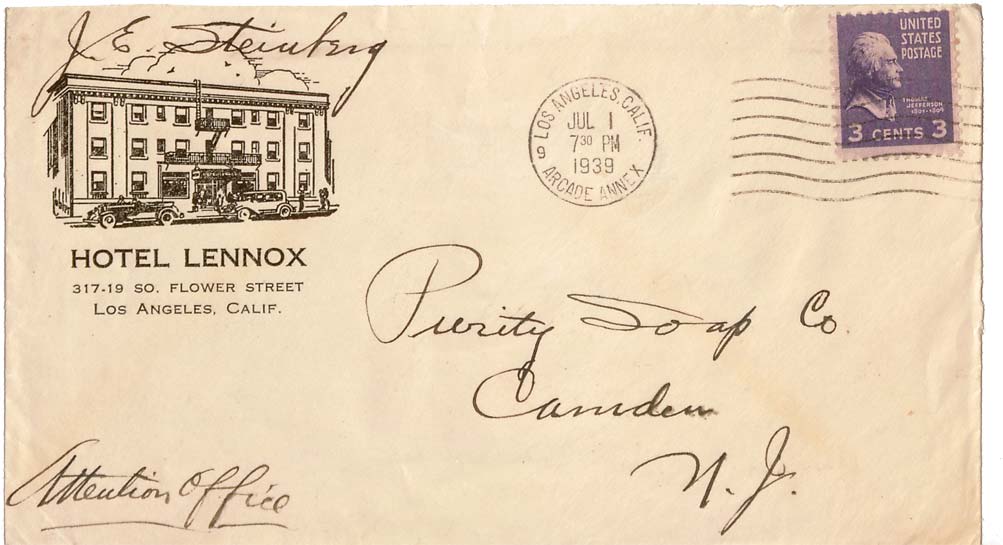 J. E. Steinberg
HOTEL LENNOX
317-19 SO. FLOWER STREET
LOS ANGELES, CALIF.
LOS ANGELES, CALIF.
JUL 1
7 30 PM
1939
9
ARCADE ANNEX
UNITED
STATES
POSTAGE
THOMAS
JEFFERSON
1801-1809
3 CENTS 3
Purity Soap Co.
Camden
N. J.
Attention Office